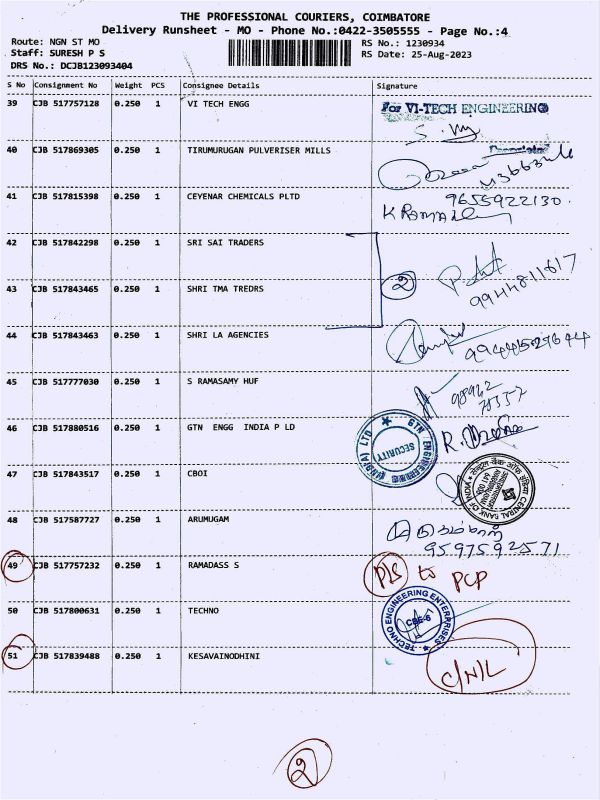 THE PROFESSIONAL COURIERS, COIMBATORE
Delivery Runsheet - MO - Phone No.:0422-3505555 - Page No.:4
Route: NGN ST MO RS No.: 1230934
Staff: SURESH P S RS Date: 25-Aug-2023
DRS No.: DCJB123093404
S No Consignment No Weight PCS Consignee Details Signature
39 CJB 517757128 0.250 1 VI TECH ENGG For VI-TECH ENGINEERING
40 CJB 517869305 0.250 1 TIRUMURUGAN PULVERISER MILLS
41 CJB 517815398 0.250 1 CEYENAR CHEMICALS PLTD 9655922130
42 CJB 517842298 0.250 1 SRI SAI TRADERS
43 CJB 517843465 0.250 1 SHRI TMA TREDRS 2 9944811617
44 CJB 517843463 0.250 1 SHRI LA AGENCIES
45 CJB 517777030 0.250 1 S RAMASAMY HUF
46 CJB 517880516 0.250 1 GTN ENGG INDIA P LD GTN ENGINEERING (INDIA) LTD SECURITY
47 CJB 517843517 0.250 1 CBOI CENTRAL BANK OF INDIA
48 CJB 517587727 0.250 1 ARUMUGAM 9597592571
49 CJB 517757232 0.250 1 RAMADASS S PLS to PCP
50 CJB 517800631 0.250 1 TECHNO TECHNO ENGINEERING ENTERPRISES CBE-6
51 CJB 517839488 0.250 1 KESAVAINODHINI C/N/L
2